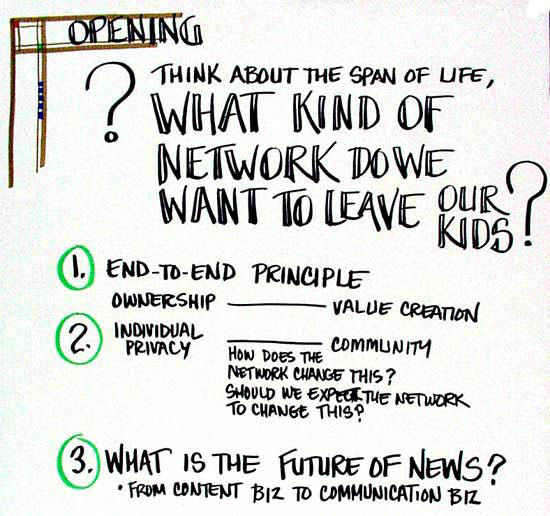 OPENING
? THINK ABOUT THE SPAN OF LIFE,
WHAT KIND OF
NETWORK DO WE
WANT TO LEAVE OUR KIDS?
1. END-TO-END PRINCIPLE
OWNERSHIP ——— VALUE CREATION
2. INDIVIDUAL PRIVACY ——— COMMUNITY
HOW DOES THE
NETWORK CHANGE THIS?
SHOULD WE EXPECT THE NETWORK
TO CHANGE THIS?
3. WHAT IS THE FUTURE OF NEWS?
• FROM CONTENT BIZ TO COMMUNICATION BIZ